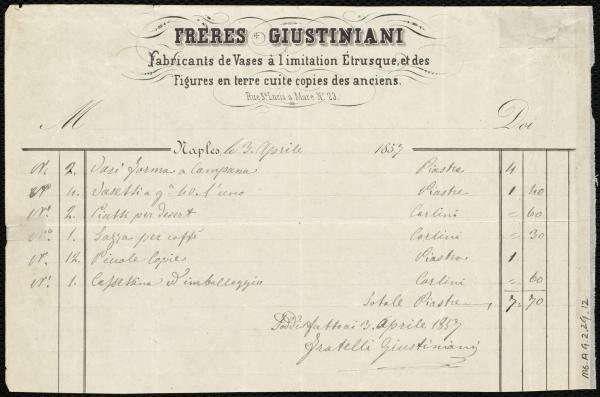 FRÈRES GIUSTINIANI
Fabricants de Vases à l'imitation Étrusque, et des
Figures en terre cuite copies des anciens.
Rue Ste Lucia a Mare No. 23.
M Doi
Naples, le 3. Aprile 1857
No. 2. Vasi forma a Campana Piastre 4
No 4. Vasetti a gna 40. l'uno Piastre 1 40
No. 2. Piatti per desert Carlini = 60
No. 1. Tazza per caffè Carlini = 30
No. 12. Piccole Copie Piastra 1
No. 1. Cassettina d'imballaggio Carlini = 60
Totale Piastre 7=70
Soddisfatto ai 3. Aprile 1857
Fratelli Giustiniani
M6.A9.2.29.12